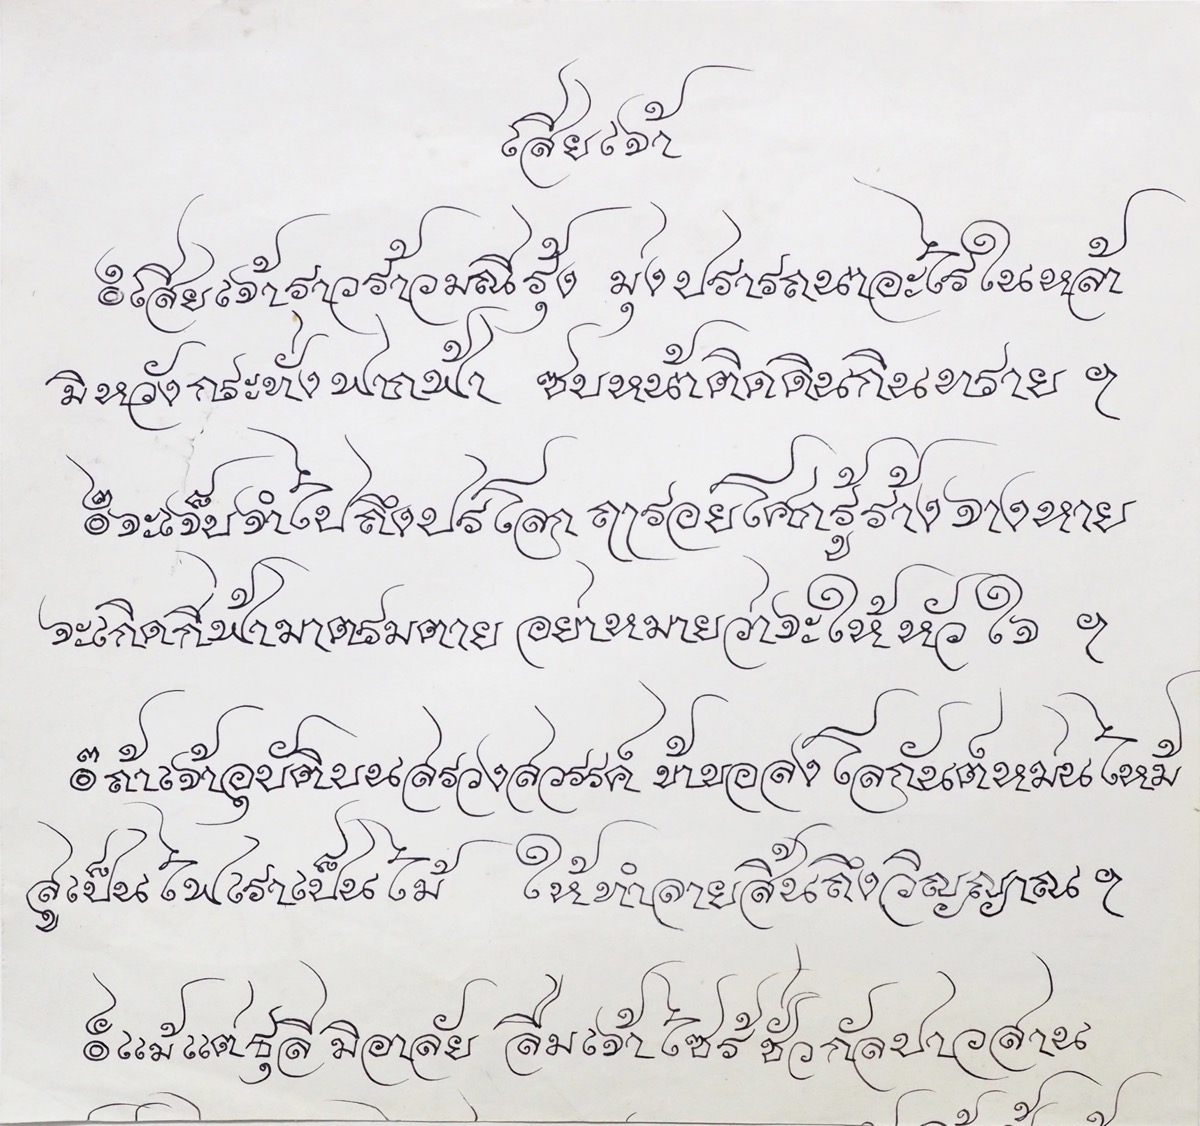 เสียเจ้า
๏ เสียเจ้าราวร้าวมณีรุ้ง มุ่งปรารถนาอะไรในหล้า
มิหวังกระทั่งฟากฟ้า ซบหน้าติดดินกินทราย ฯ
๏ จะเจ็บจำไปถึงปรโลก ฤๅรอยโศกรู้ร้างจางหาย
จะเกิดกี่ฟ้ามาตรมตาย อย่าหมายว่าจะให้หัวใจ ฯ
๏ ถ้าเจ้าอุบัติบนสรวงสวรรค์ ข้าขอลงโลกันต์หม่นไหม้
สูเป็นไฟเราเป็นไม้ ให้ทำลายสิ้นถึงวิญญาณ ฯ
๏ แม้แต่ธุลีมิอาลัย ลืมเจ้าไซร้ชั่วกัลปาวสาน